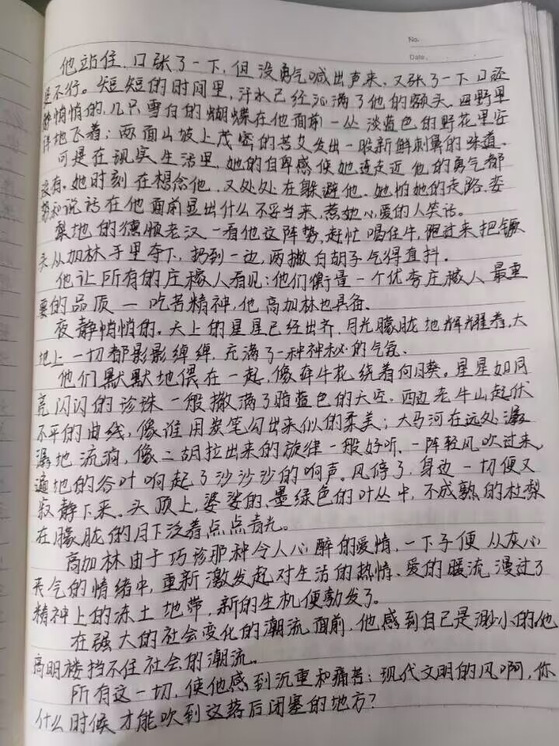 No.
Date.
他站住,口张了一下,但没勇气喊出声来,又张了一下口还
是不行。短短的时间里,汗水已经沁满了他的额头。四野里
静悄悄的,几只雪白的蝴蝶在他面前一丛淡蓝色的野花里安
详地飞着;两面山坡上茂密的苦艾发出一股新鲜刺鼻的味道。
可是在现实生活里,她的自卑感使她连走近他的勇气都
没有。她时刻在想念他,又处处在躲避他。她怕她的走路,姿
势和说话在他面前显出什么不妥当来,惹她心爱的人笑话。
犁地的德顺老汉一看他这阵势,赶忙喝住牛,跑过来把镢
头从加林手里夺下,扔到一边,两撇白胡子气得直抖。
他让所有的庄稼人看见:他们衡量一个优秀庄稼人最重
要的品质——吃苦精神,他高加林也具备。
夜静悄悄的。天上的星星已经出齐,月光朦胧地辉耀着,大
地上一切都影影绰绰,充满了一种神秘的气氛。
他们默默地偎在一起,像牵牛花绕着向日葵。星星如同
亮闪闪的珍珠一般撒满了暗蓝色的天空。西边老牛山起伏
不平的曲线,像谁用炭笔勾出来似的柔美;大马河在远处潺
潺地流淌,像二胡拉出来的旋律一般好听。一阵轻风吹过来,
遍地的谷叶响起了沙沙沙的响声。风停了,身边一切便又
寂静下来。头顶上,婆娑的、墨绿色的叶丛中,不成熟的杜梨
在朦胧的月下泛着点点青光。
高加林由于巧珍那种令人心醉的爱情,一下子便从灰心
丧气的情绪中,重新激发起对生活的热情。爱的暖流漫过了
精神上的冻土地带,新的生机便勃发了。
在强大的社会变化的潮流面前,他感到自己是渺小的。他
高明楼挡不住社会的潮流。
所有这一切,使他感到沉重和痛苦:现代文明的风啊,你
什么时候才能吹到这落后闭塞的地方?